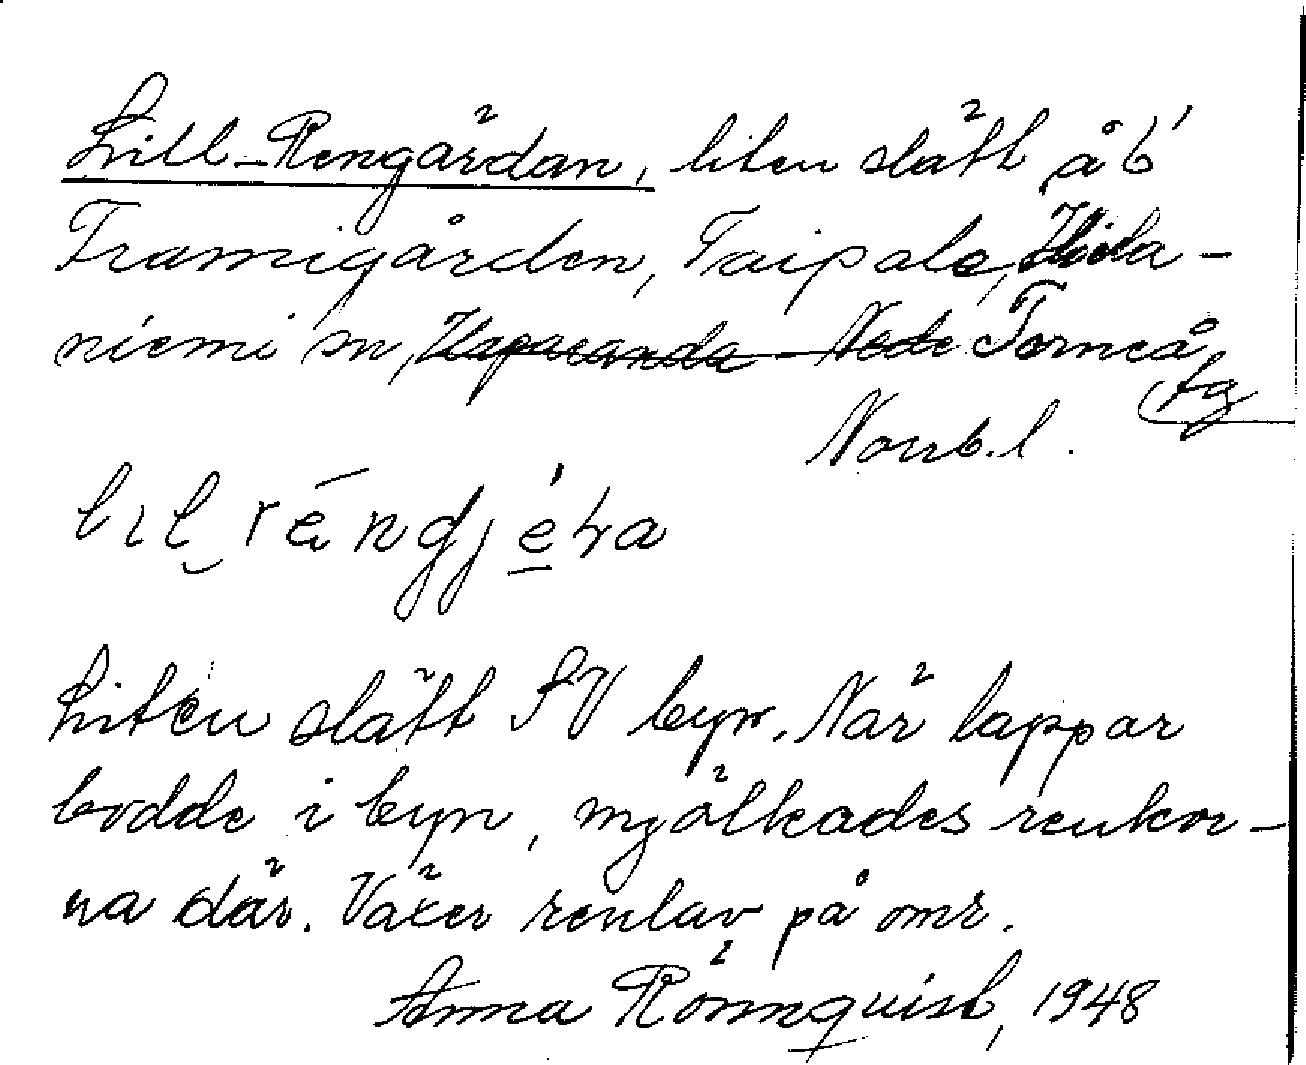 Lill-Rengärdan, liten slätt å b
Framigården, Taipale, Hieta-
niemi sn, Haparanda - Nede Torneå
tg
Norrb. l.
Liten slätt SV byn. När lappar
bodde i byn, mjölkades renkor-
na där. Växer renlav på omr.
Anna Rönnquist, 1948